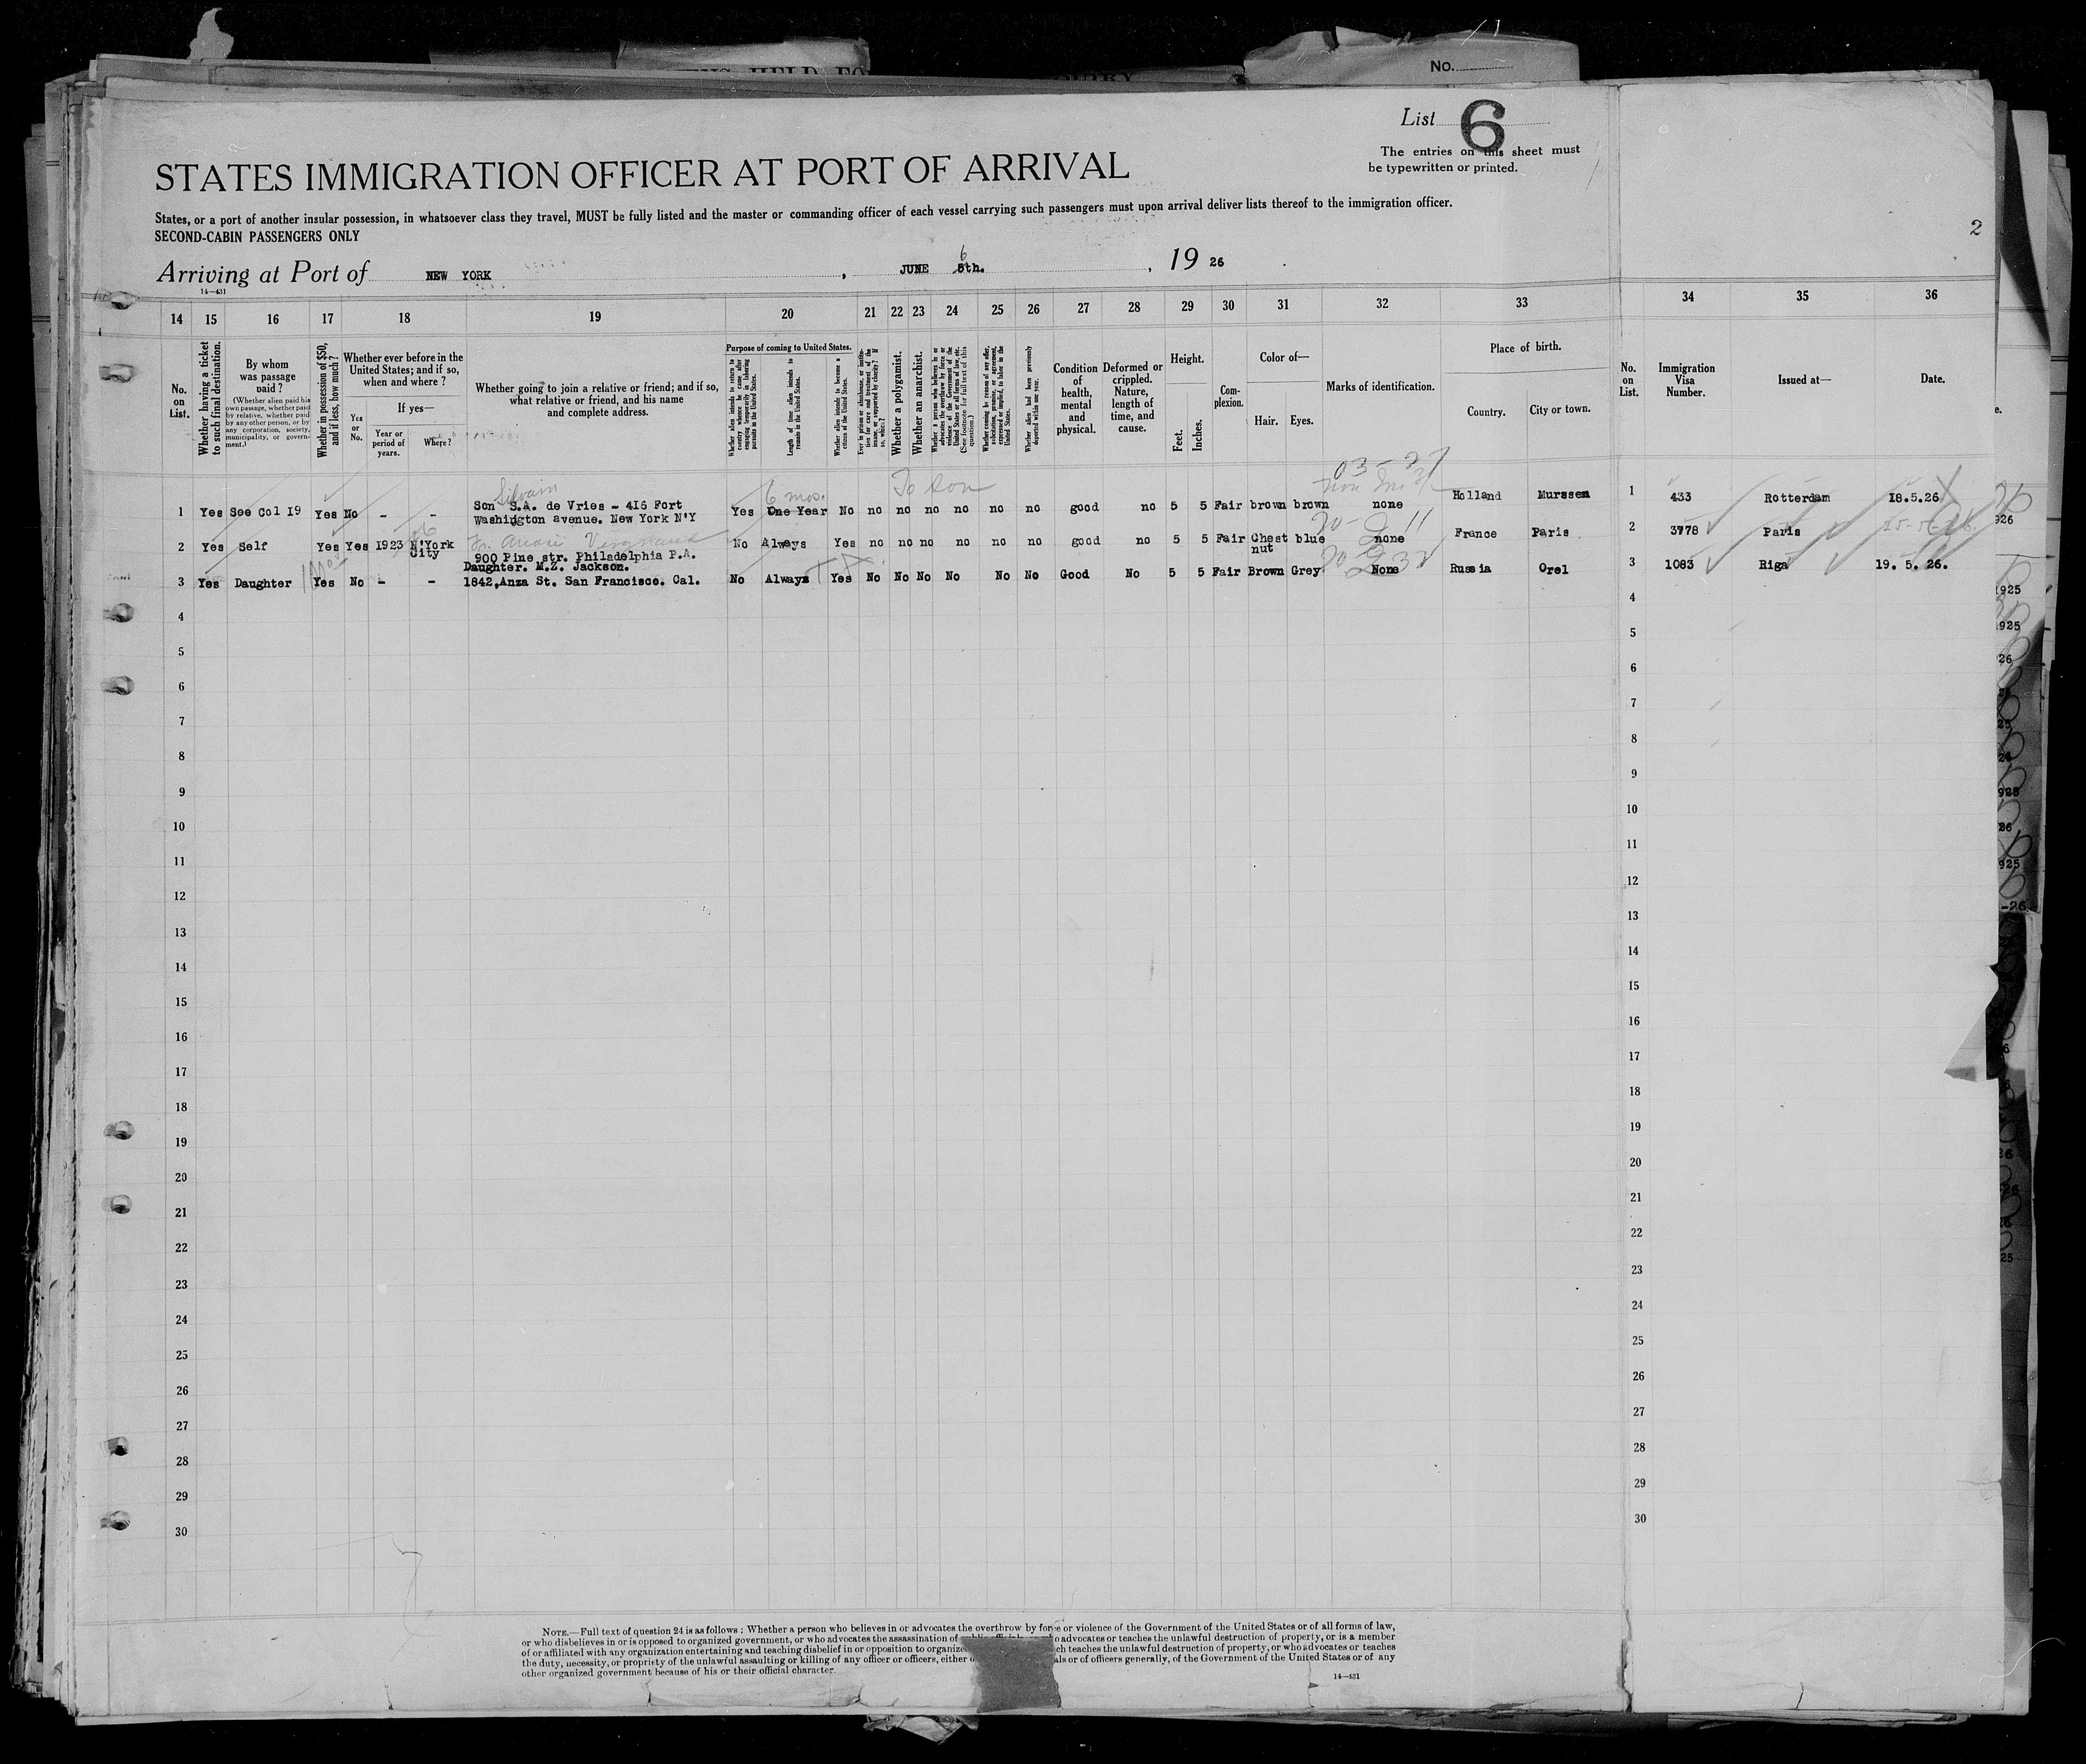 No.
List 6
The entries on this sheet must
be typewritten or printed.
STATES IMMIGRATION OFFICER AT PORT OF ARRIVAL
States, or a port of another insular possession, in whatsoever class they travel, MUST be fully listed and the master or commanding officer of each vessel carrying such passengers must upon arrival deliver lists thereof to the immigration officer.
SECOND-CABIN PASSENGERS ONLY
2
Arriving at Port of NEW YORK, JUNE 6 5th., 19 26
14—431
14 15 16 17 18 19 20 21 22 23 24 25 26 27 28 29 30 31 32 33 34 35 36
No. on List.
Whether having a ticket to such final destination.
By whom was passage paid?
(Whether alien paid his own passage, whether paid by relative, whether paid by any other person, or by any corporation, society, municipality, or government.)
Whether in possession of $50, and if less, how much?
Whether ever before in the United States; and if so, when and where?
Yes or No.
If yes—
Year or period of years.
Where?
Whether going to join a relative or friend; and if so, what relative or friend, and his name and complete address.
Purpose of coming to United States.
Whether alien intends to return to country whence he came after engaging temporarily in laboring pursuits in the United States.
Length of time alien intends to remain in the United States.
Whether alien intends to become a citizen of the United States.
Ever in prison or almshouse, or institution for care and treatment of the insane, or supported by charity? If so, which?
Whether a polygamist.
Whether an anarchist.
Whether a person who believes in or advocates the overthrow by force or violence of the Government of the United States or all forms of law, etc. (See footnote for full text of this question.)
Whether coming by reason of any offer, solicitation, promise, or agreement, expressed or implied, to labor in the United States.
Whether alien had been previously deported within one year.
Condition of health, mental and physical.
Deformed or crippled. Nature, length of time, and cause.
Height.
Feet. Inches.
Complexion.
Color of—
Hair. Eyes.
Marks of identification.
Place of birth.
Country. City or town.
No. on List.
Immigration Visa Number.
Issued at—
Date.
Silvain 6 mos. To son 03-27
1 Yes See Col 19 Yes No - - Son S.A. de Vries - 416 Fort Washington avenue. New York N'Y Yes One Year No no no no no no no good no 5 5 Fair brown brown none Holland Murssen 1 433 Rotterdam 18.5.26
2 Yes Self Yes Yes 1923 N'York City 900 Pine str. Philadelphia P.A. No Always Yes no no no no no no good no 5 5 Fair Chest nut blue none France Paris 2 3778 Paris
3 Yes Daughter Yes No - - Daughter. M.Z. Jackson. 1842, Anza St. San Francisco. Cal. No Always Yes No No No No No No Good No 5 5 Fair Brown Grey None Russia Orel 3 1083 Riga 19. 5. 26.
4 4
5 5
6 6
7 7
8 8
9 9
10 10
11 11
12 12
13 13
14 14
15 15
16 16
17 17
18 18
19 19
20 20
21 21
22 22
23 23
24 24
25 25
26 26
27 27
28 28
29 29
30 30
NOTE.—Full text of question 24 is as follows: Whether a person who believes in or advocates the overthrow by force or violence of the Government of the United States or of all forms of law,
or who disbelieves in or is opposed to organized government, or who advocates the assassination of advocates or teaches the unlawful destruction of property, or is a member
of or affiliated with any organization entertaining and teaching disbelief in or opposition to organize teaches the unlawful destruction of property, or who advocates or teaches
the duty, necessity, or propriety of the unlawful assaulting or killing of any officer or officers, either or of officers generally, of the Government of the United States or of any
other organized government because of his or their official character.
14—431